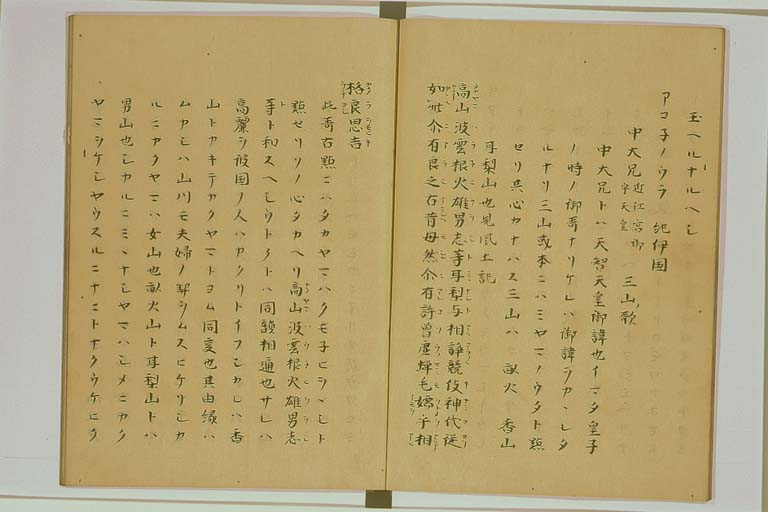 玉ヘルナルヘシ
アコ子ノウラ 紀伊国
中大兄 近江宮御宇天皇 三山ノ歌
中大兄トハ天智天皇御諱也イマタ皇子
ノ時ノ御哥ナリケレハ御諱ヲカヽレタ
ルナリ三山或本ニハミヤマノウタト點
セリ其心カナハス三山ハ 畝火 香山
耳梨山也見風土記
高山波雲根火雄男志等耳梨与相諍競伎神代従
如此尓有良之古昔母然尓有許曽虚蝉毛嬬乎相
格良思吉
此哥古點ニハタカヤマハクモ子ヒシヽミト
點セリソノ心タカヘリ高山波雲根火雄男志
等ト和スヘシウトタトハ同韻相通也サレハ
高麗ヲ彼国ノ人ハカクリトイフシカレハ香
山トカキテカクヤマトヨム同変也其由縁ハ
ムカシハ山川モ夫婦ノ契ヲムスヒケリシカ
ルニカクヤマハ女山也畝火山ト耳梨山トハ
男山也シカルニミヽナシヤマハシメニカク
ヤマヲケシヤウスルニナニトナクウケヒク